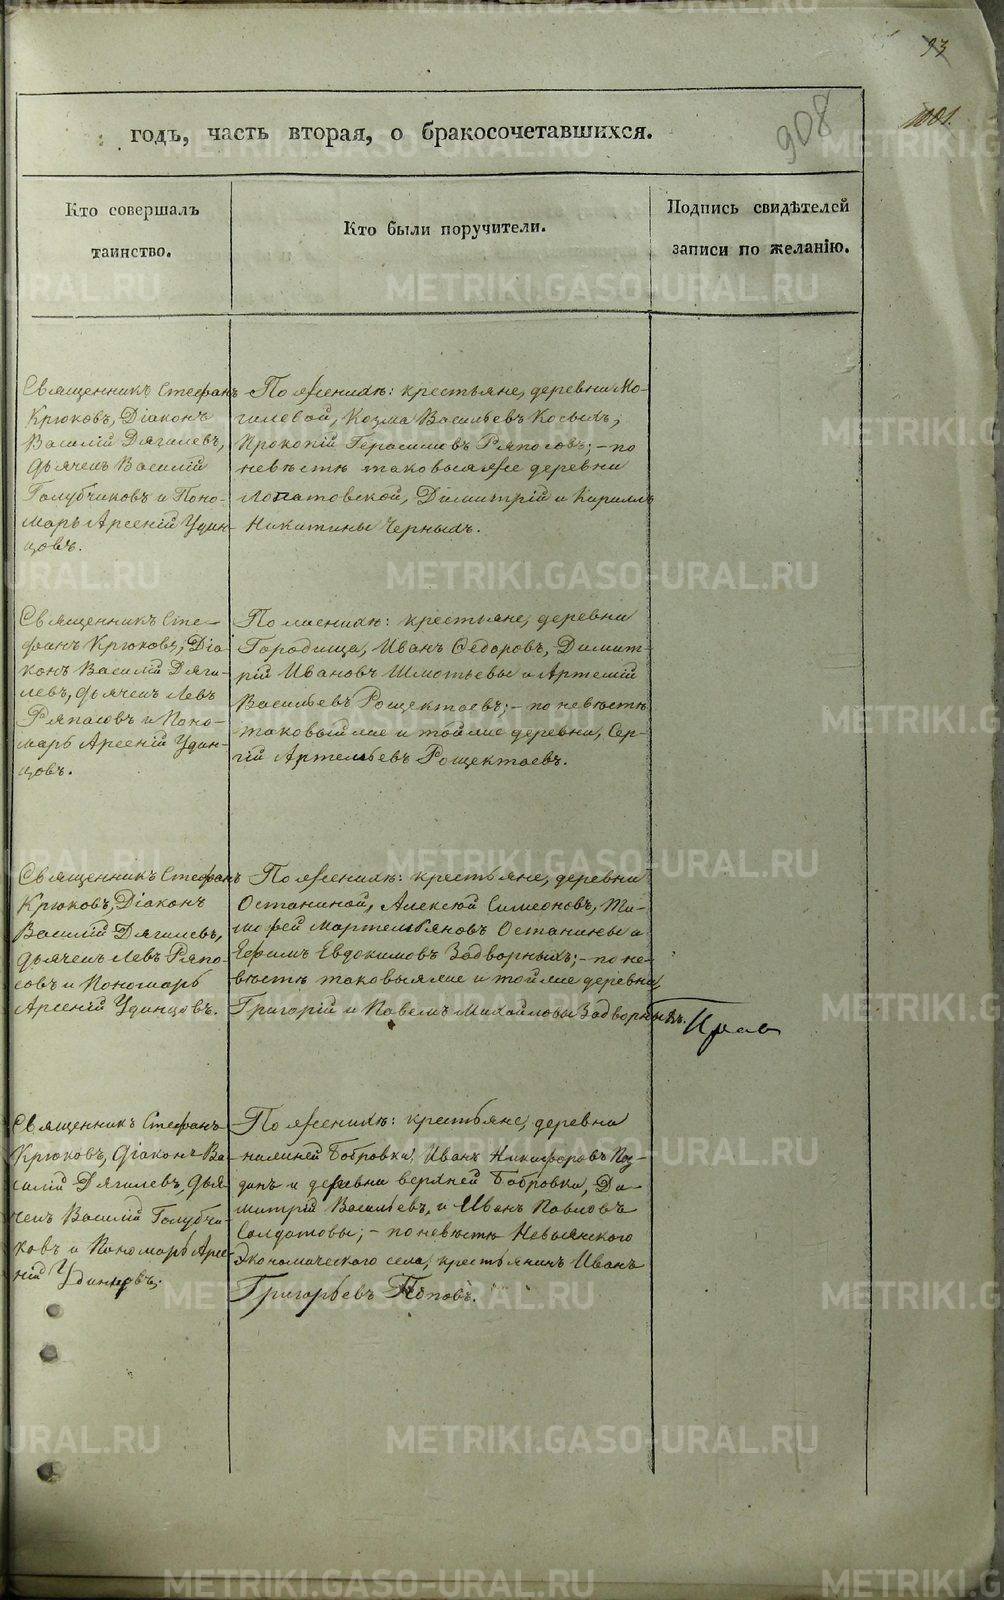 93
1001.
908
годъ, часть вторая, о бракосочетавшихся.
Кто совершалъ
таинство.
Кто были поручители.
Подпись свидѣтелей
записи по желанію.
Священникъ Стефанъ
Крюковъ, Діаконъ
Василій Дягилевъ,
дьячекъ Василій
Голубчиковъ и Поно-
марь Арсеній Удин-
цовъ.
По женихѣ: крестьяне, деревни Мо-
гилевой, Козма Васильевъ Косыхъ,
Прокопій Герасимовъ Ряпосовъ; – по
невѣстѣ таковыя же деревни
Лопатовской, Димитрій и Кириллъ
Никитины Черныхъ.
Священникъ Сте-
фанъ Крюковъ, Діа-
конъ Василій Дяги-
левъ, дьячекъ Левъ
Ряпасовъ и Поно-
марь Арсеній Удин-
цовъ.
По женихѣ: крестьяне, деревни
Городища, Иванъ Ѳедоровъ, Димит-
рій Ивановъ Шмотьевы и Артемій
Васильевъ Рощектаевъ; – по невѣстѣ
таковый же и той же деревни, Сер-
гій Артемьевъ Рощектаевъ.
Священникъ Стефанъ
Крюковъ, Діаконъ
Василій Дягилевъ,
дьячекъ Левъ Ряпо-
совъ и Пономарь
Арсеній Удинцовъ.
По женихѣ: крестьяне, деревни
Останиной, Алексѣй Симеоновъ, Ти-
мофей Мартемьяновъ Останины и
Ефимъ Евдокимовъ Задворныхъ; – по не-
вѣстѣ таковыя же и той же деревни,
Григорій и Павелъ Михайловы Задворныхъ.
Священникъ Стефанъ
Крюковъ, Діаконъ Ва-
силій Дягилевъ, дья-
чекъ Василій Голубчи-
ковъ и Пономарь Арсе-
ній Удинцовъ.
По женихѣ: крестьяне, деревни
нижней Бобровки, Иванъ Никифоровъ
и деревни верхней Бобровки, Ди-
митрій Васильевъ, и Иванъ Павловъ
Солдатовы; – по невѣстѣ Невьянского
Экономического села, крестьянинъ Иванъ
Григорьевъ Поповъ.
METRIKI.GASO-URAL.RU